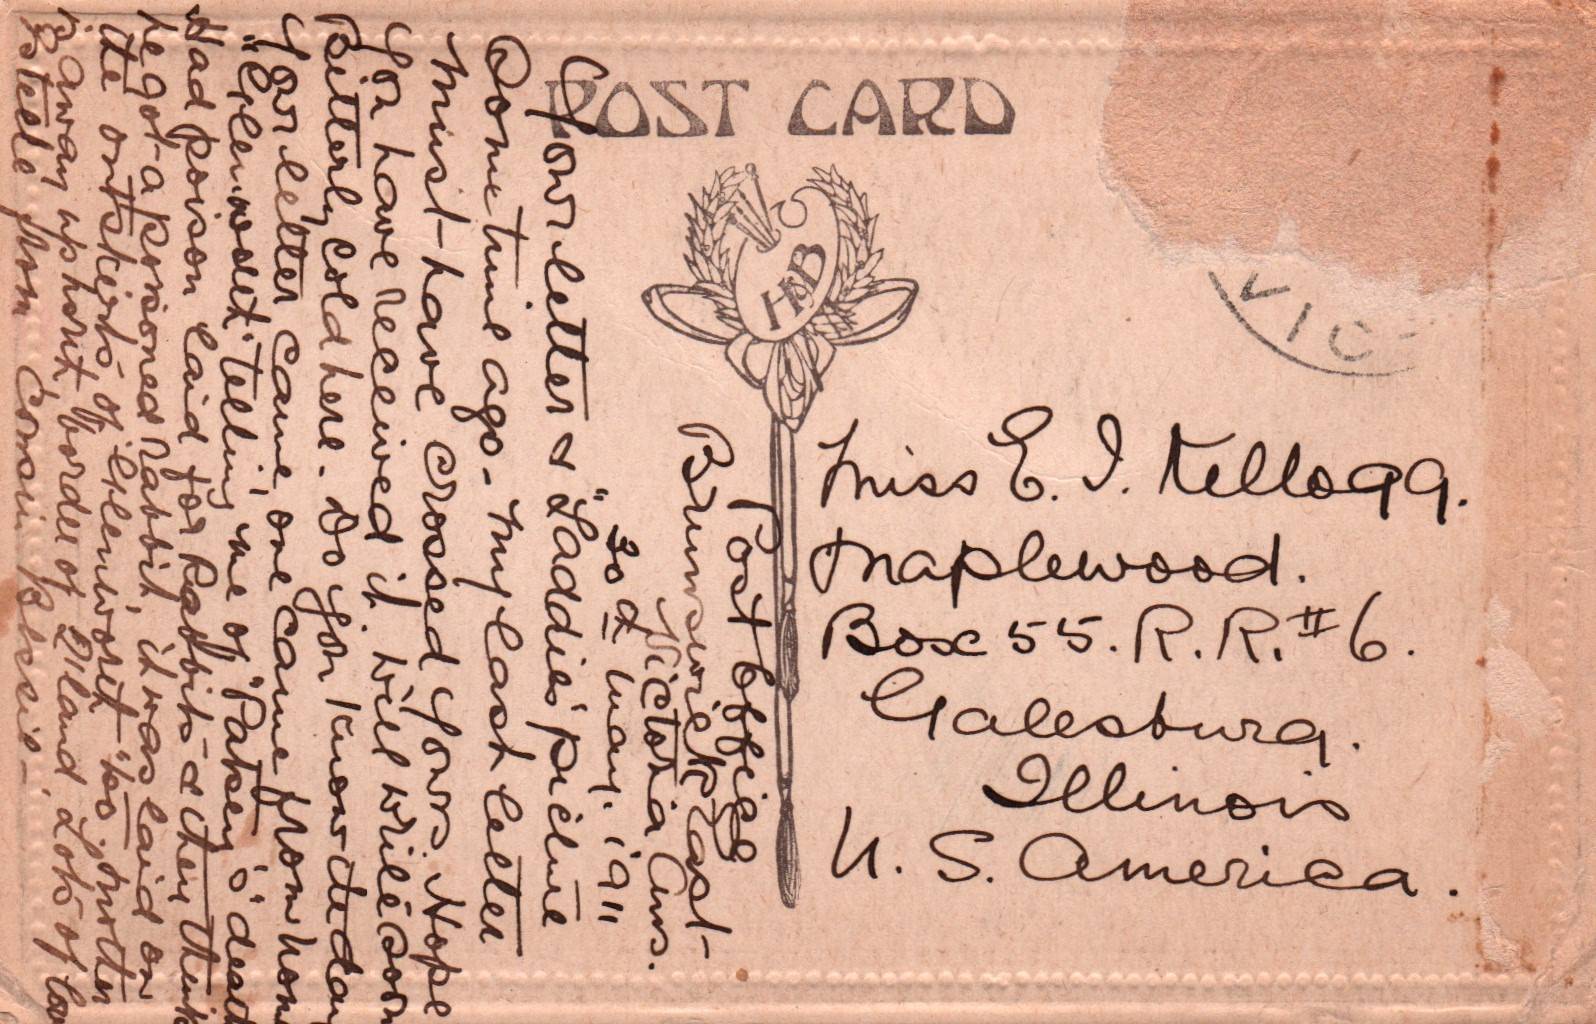 POST CARD
HB
VIC
Post Office
Brunswick East
Victoria Aus.
30th May. 1911
Your letter & "Laddies" picture
Some time ago. My last letter
must have crossed yours. Hope
you have received it. will write soon
Bitterly cold here. Do you know the day
your letter came, one came from home
"Glenwork" telling me of "Patsey's" death
Had poison laid for Rabbits & they think
he got a poisoned rabbit, it was laid on
the outskirts of "Glenwork" too. Mother
is away up north, border of Q'land. Lots of love
from Cousin
Miss E. I. Kellogg.
Maplewood.
Box 55. R. R. # 6.
Galesburg.
Illinois
U. S. America.